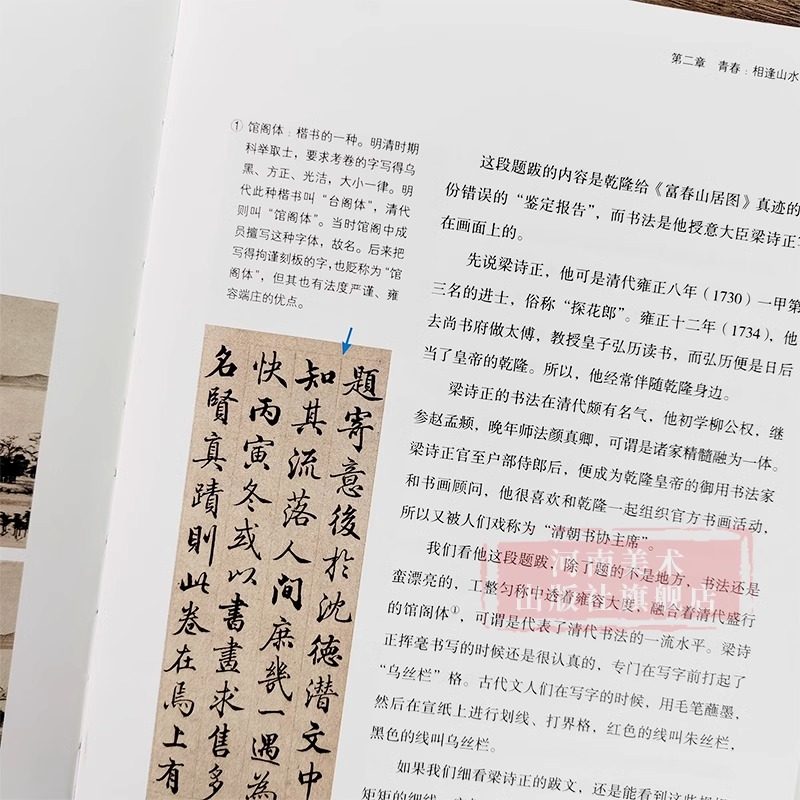 第二章 青春：相逢山水
① 馆阁体：楷书的一种。明清时期
科举取士，要求考卷的字写得乌
黑、方正、光洁，大小一律。明
代此种楷书叫“台阁体”，清代
则叫“馆阁体”。当时馆阁中成
员擅写这种字体，故名。后来把
写得拘谨刻板的字，也贬称为“馆
阁体”，但其也有法度严谨、雍
容端庄的优点。
題寄意後於沈德潛文中
知其流落人間庶幾一遇為
快丙寅冬或以書畫求售多
名賢真蹟則此卷在焉上有
这段题跋的内容是乾隆给《富春山居图》真迹的
份错误的“鉴定报告”，而书法是他授意大臣梁诗正
在画面上的。
先说梁诗正，他可是清代雍正八年（1730）一甲第
三名的进士，俗称“探花郎”。雍正十二年（1734），他
去尚书府做太傅，教授皇子弘历读书，而弘历便是日后
当了皇帝的乾隆。所以，他经常伴随乾隆身边。
梁诗正的书法在清代颇有名气，他初学柳公权，继
参赵孟頫，晚年师法颜真卿，可谓是诸家精髓融为一体。
梁诗正官至户部侍郎后，便成为乾隆皇帝的御用书法家
和书画顾问，他很喜欢和乾隆一起组织官方书画活动，
所以又被人们戏称为“清朝书协主席”。
我们看他这段题跋，除了题的不是地方，书法还是
蛮漂亮的，工整匀称中透着雍容大度，融合着清代盛行
的馆阁体①，可谓是代表了清代书法的一流水平。梁诗
正挥毫书写的时候还是很认真的，专门在写字前打起了
“乌丝栏”格。古代文人们在写字的时候，用毛笔蘸墨，
然后在宣纸上进行划线、打界格，红色的线叫朱丝栏，
黑色的线叫乌丝栏。
如果我们细看梁诗正的跋文，还是能看到这些
短短的细线
河南美术
出版社旗舰店